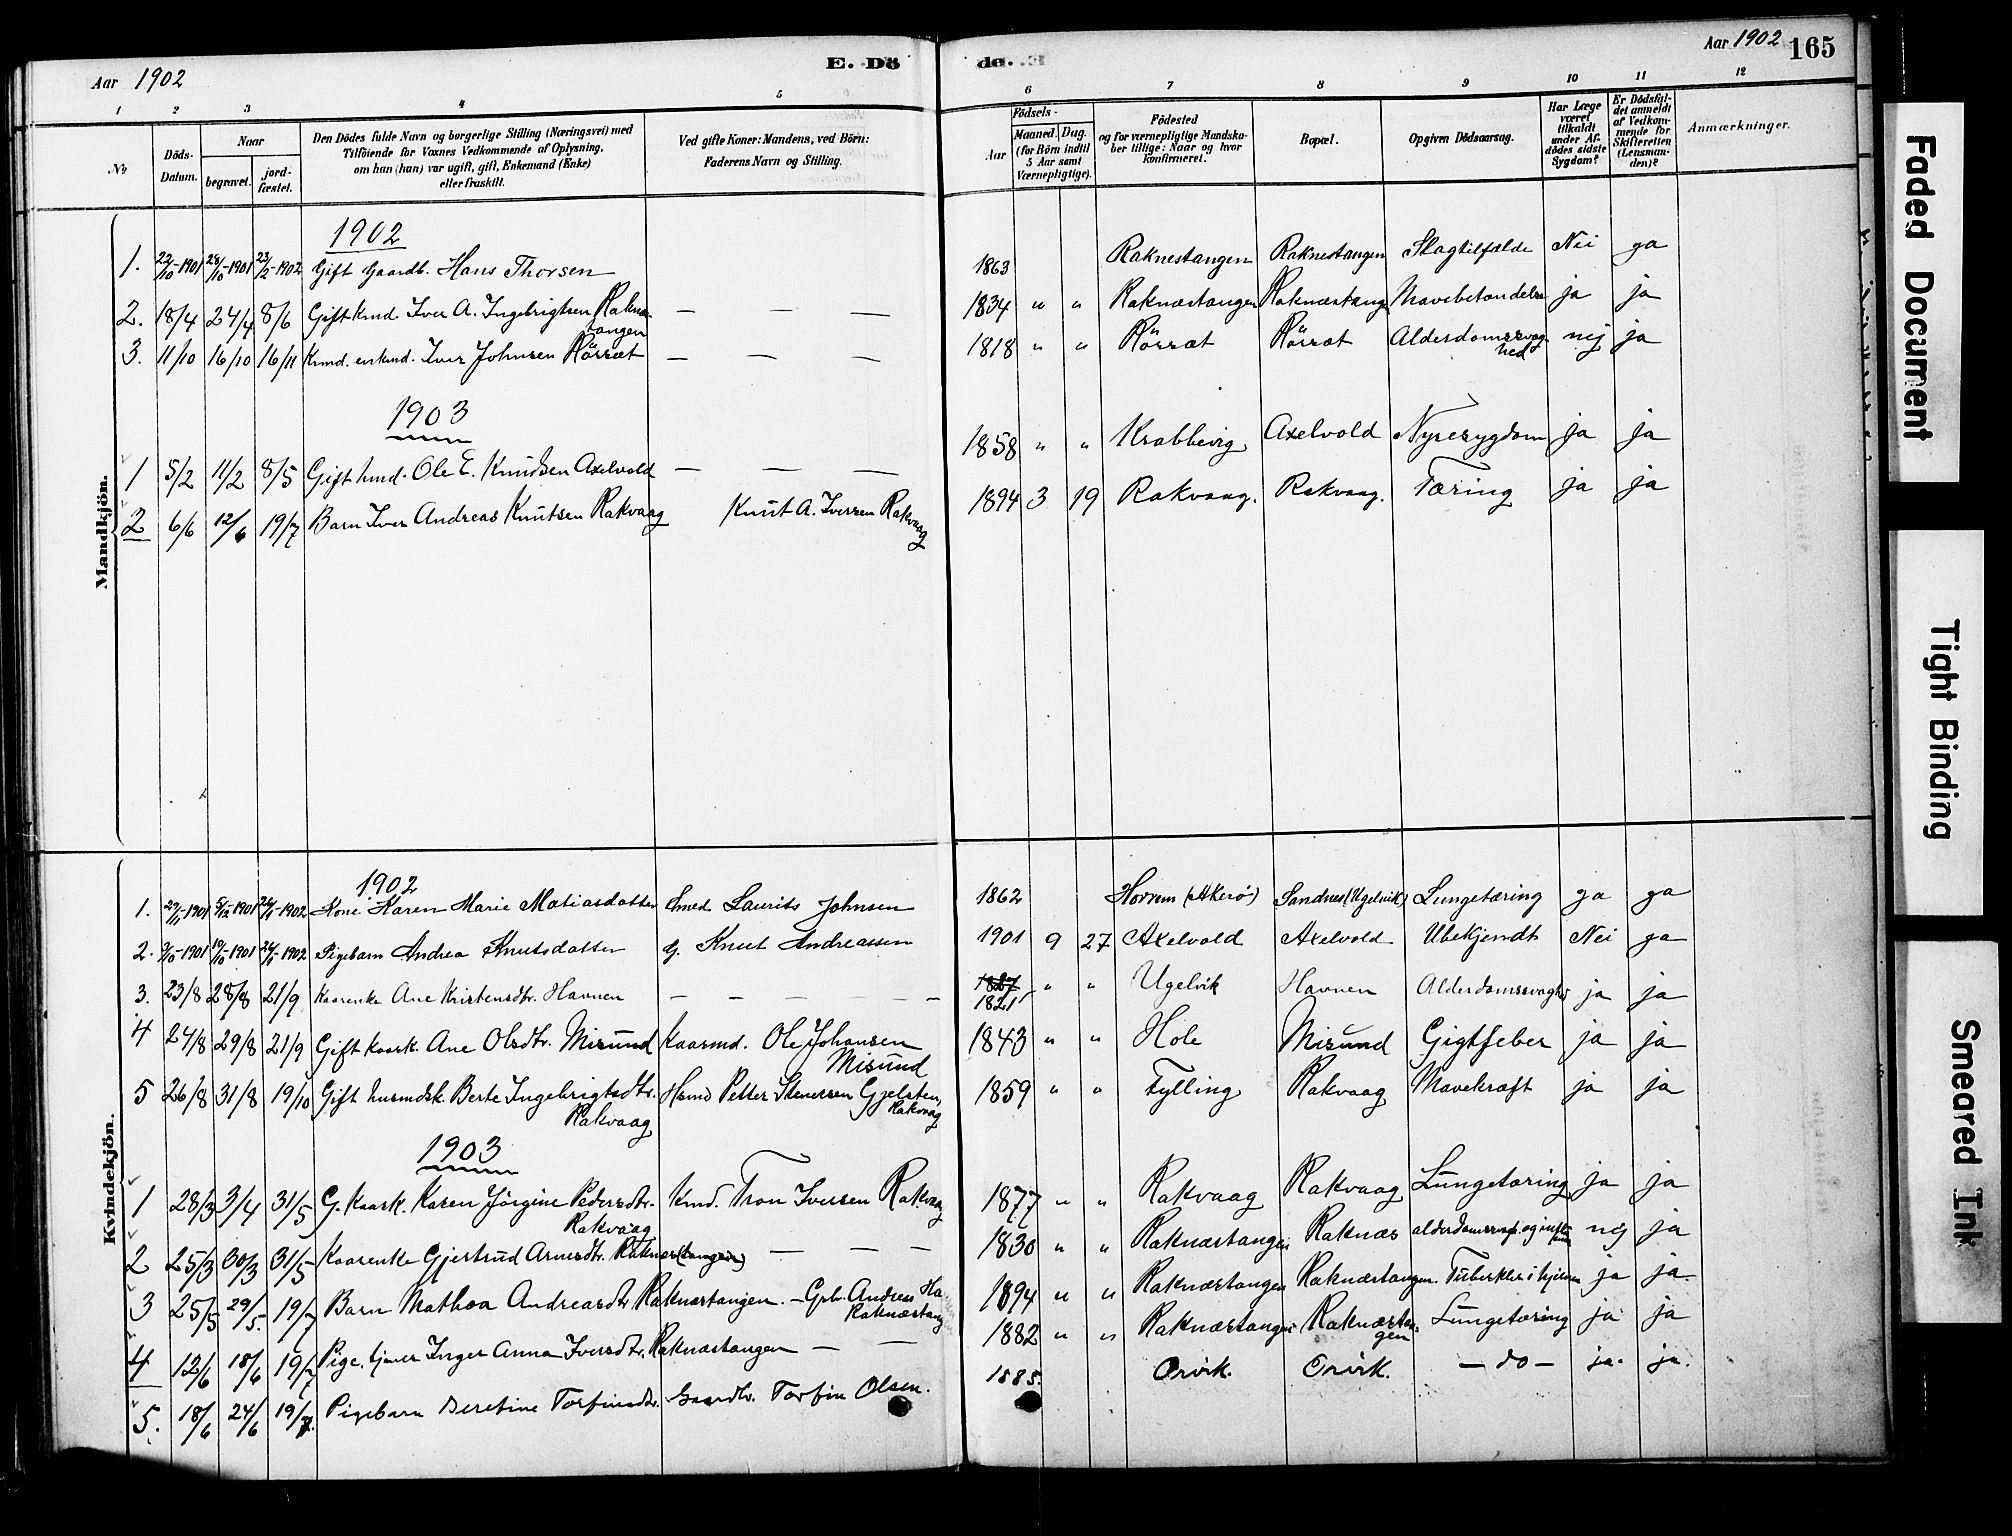 Aar 1902
E. Dö
de.
Aar 1902 165
1 2 3 4 5 6 7 8 9 10 11 12
№
Döds-Datum.
Naar
begravet.
jord-fæstet.
Den Dödes fulde Navn og borgerlige Stilling (Næringsvei) med
Tilföiende for Voxnes Vedkommende af Oplysning,
om han (hun) var ugift, gift, Enkemand (Enke)
eller fraskilt.
Ved gifte Koner: Mandens, ved Börn:
Faderens Navn og Stilling.
Födsels-
Aar
Maaned. Dag.
(for Börn indtil
5 Aar samt
Værnepligtige).
Födested
og for værnepligtige Mandska-
ber tillige: Naar og hvor
konfirmeret.
Bopæl.
Opgiven Dödsaarsag.
Har Læge
været
tilkaldt
under Af-
dödes sidste
Sygdom?
Er Dödsfal-
det anmeldt
af Vedkom-
mende for
Skifteretten
(Lensman-
den)?
Anmærkninger.
Mandkjön.
1902
1. 22/10-1901 28/10-1901 23/2-1902 Gift Gaardb. Hans Thorsen 1863 Raknestangen Raknestangen Slagtilfælde Nei ja
2. 18/4 24/4 8/6 Gift kmd. Iver A. Ingebrigtsen Raknæs-
tangen — — — 1834 " " Raknæstangen Raknæstange Mavebetændelse ja ja
3. 11/10 16/10 16/11 Kmd. enkmd. Iver Johnsen Rörsæt — — — 1818 " " Rörsæt Rörsæt Alderdomssvag-
hed nej ja
1903
1 5/2 11/2 8/5 Gift hmd. Ole E. Knudsen Axelvold — — — 1858 " " Krabbevig Axelvold Nyresygdom ja ja
2 6/6 12/6 19/7 Barn Iver Andreas Knutsen Rakvaag Knut A. Iversen Rakvaag 1894 3 19 Rakvaag. Rakvaag. Tæring ja ja
Kvindekjön.
1902
1. 29/11-1901 5/12-1901 24/1-1902 Kone Karen Marie Matiasdatter Smed Laurits Johnsen 1862 Horrem (Akerö) Sandnes (Ugelvik) Lungetæring ja ja
2. 2/10-1901 10/10-1901 24/1-1902 Pigebarn Andrea Knutsdatter G. Knut Andreassen 1901 9 27 Axelvold Axelvold Ubekjendt Nei ja
3. 23/8 28/8 21/9 Kaarenke Ane Kristensdtr. Havnen — — — — 1821 " " Ugelvik Havnen Alderdomssvaghed ja ja
4 24/8 29/8 21/9 Gift kaark. Ane Olsdtr. Misund Kaarmd. Ole Johansen
Misund 1843 " " Hole Misund Gigtfeber ja ja
5 26/8 31/8 19/10 Gift husmdsk. Berte Ingebrigtsdtr.
Rakvaag Hsmd Petter Stenersen Gjelsten,
Rakvaag 1859 " " Fylling Rakvaag Mavekræft ja ja
1903
1 28/3 3/4 31/5 G. Kaark. Karen Jörgine Pedersdtr.
Rakvaag Kmd. Tron Iversen Rakvaag 1877 " " Rakvaag Rakvaag Lungetæring ja ja
2 25/3 30/3 31/5 Kaarenke Gjertrud Arnesdtr. Raknæs(tangen) — — — 1830 " " Raknæstangen Raknæs nej ja
3 25/5 29/5. 19/7 Barn Mathea Andreasdtr Raknæstangen. — Gbr. Andreas
Raknæstang 1894 " " Raknæstangen Raknæstangen. Tuberkler i hjernen ja ja.
4 12/6 18/6 19/7 Pige, Inger Anna Iversdtr. Raknæstangen — — 1882 " " Raknæstangen Raknæstan-
gen Lungetæring ja ja
5. 18/6 24/6 19/7. Pigebarn Beretine Torfinsdtr. Gaardbr. Torfin Olsen. 1885. Orvik. Orvik. — do — ja. ja.
Faded Document
Tight Binding
Smeared Ink